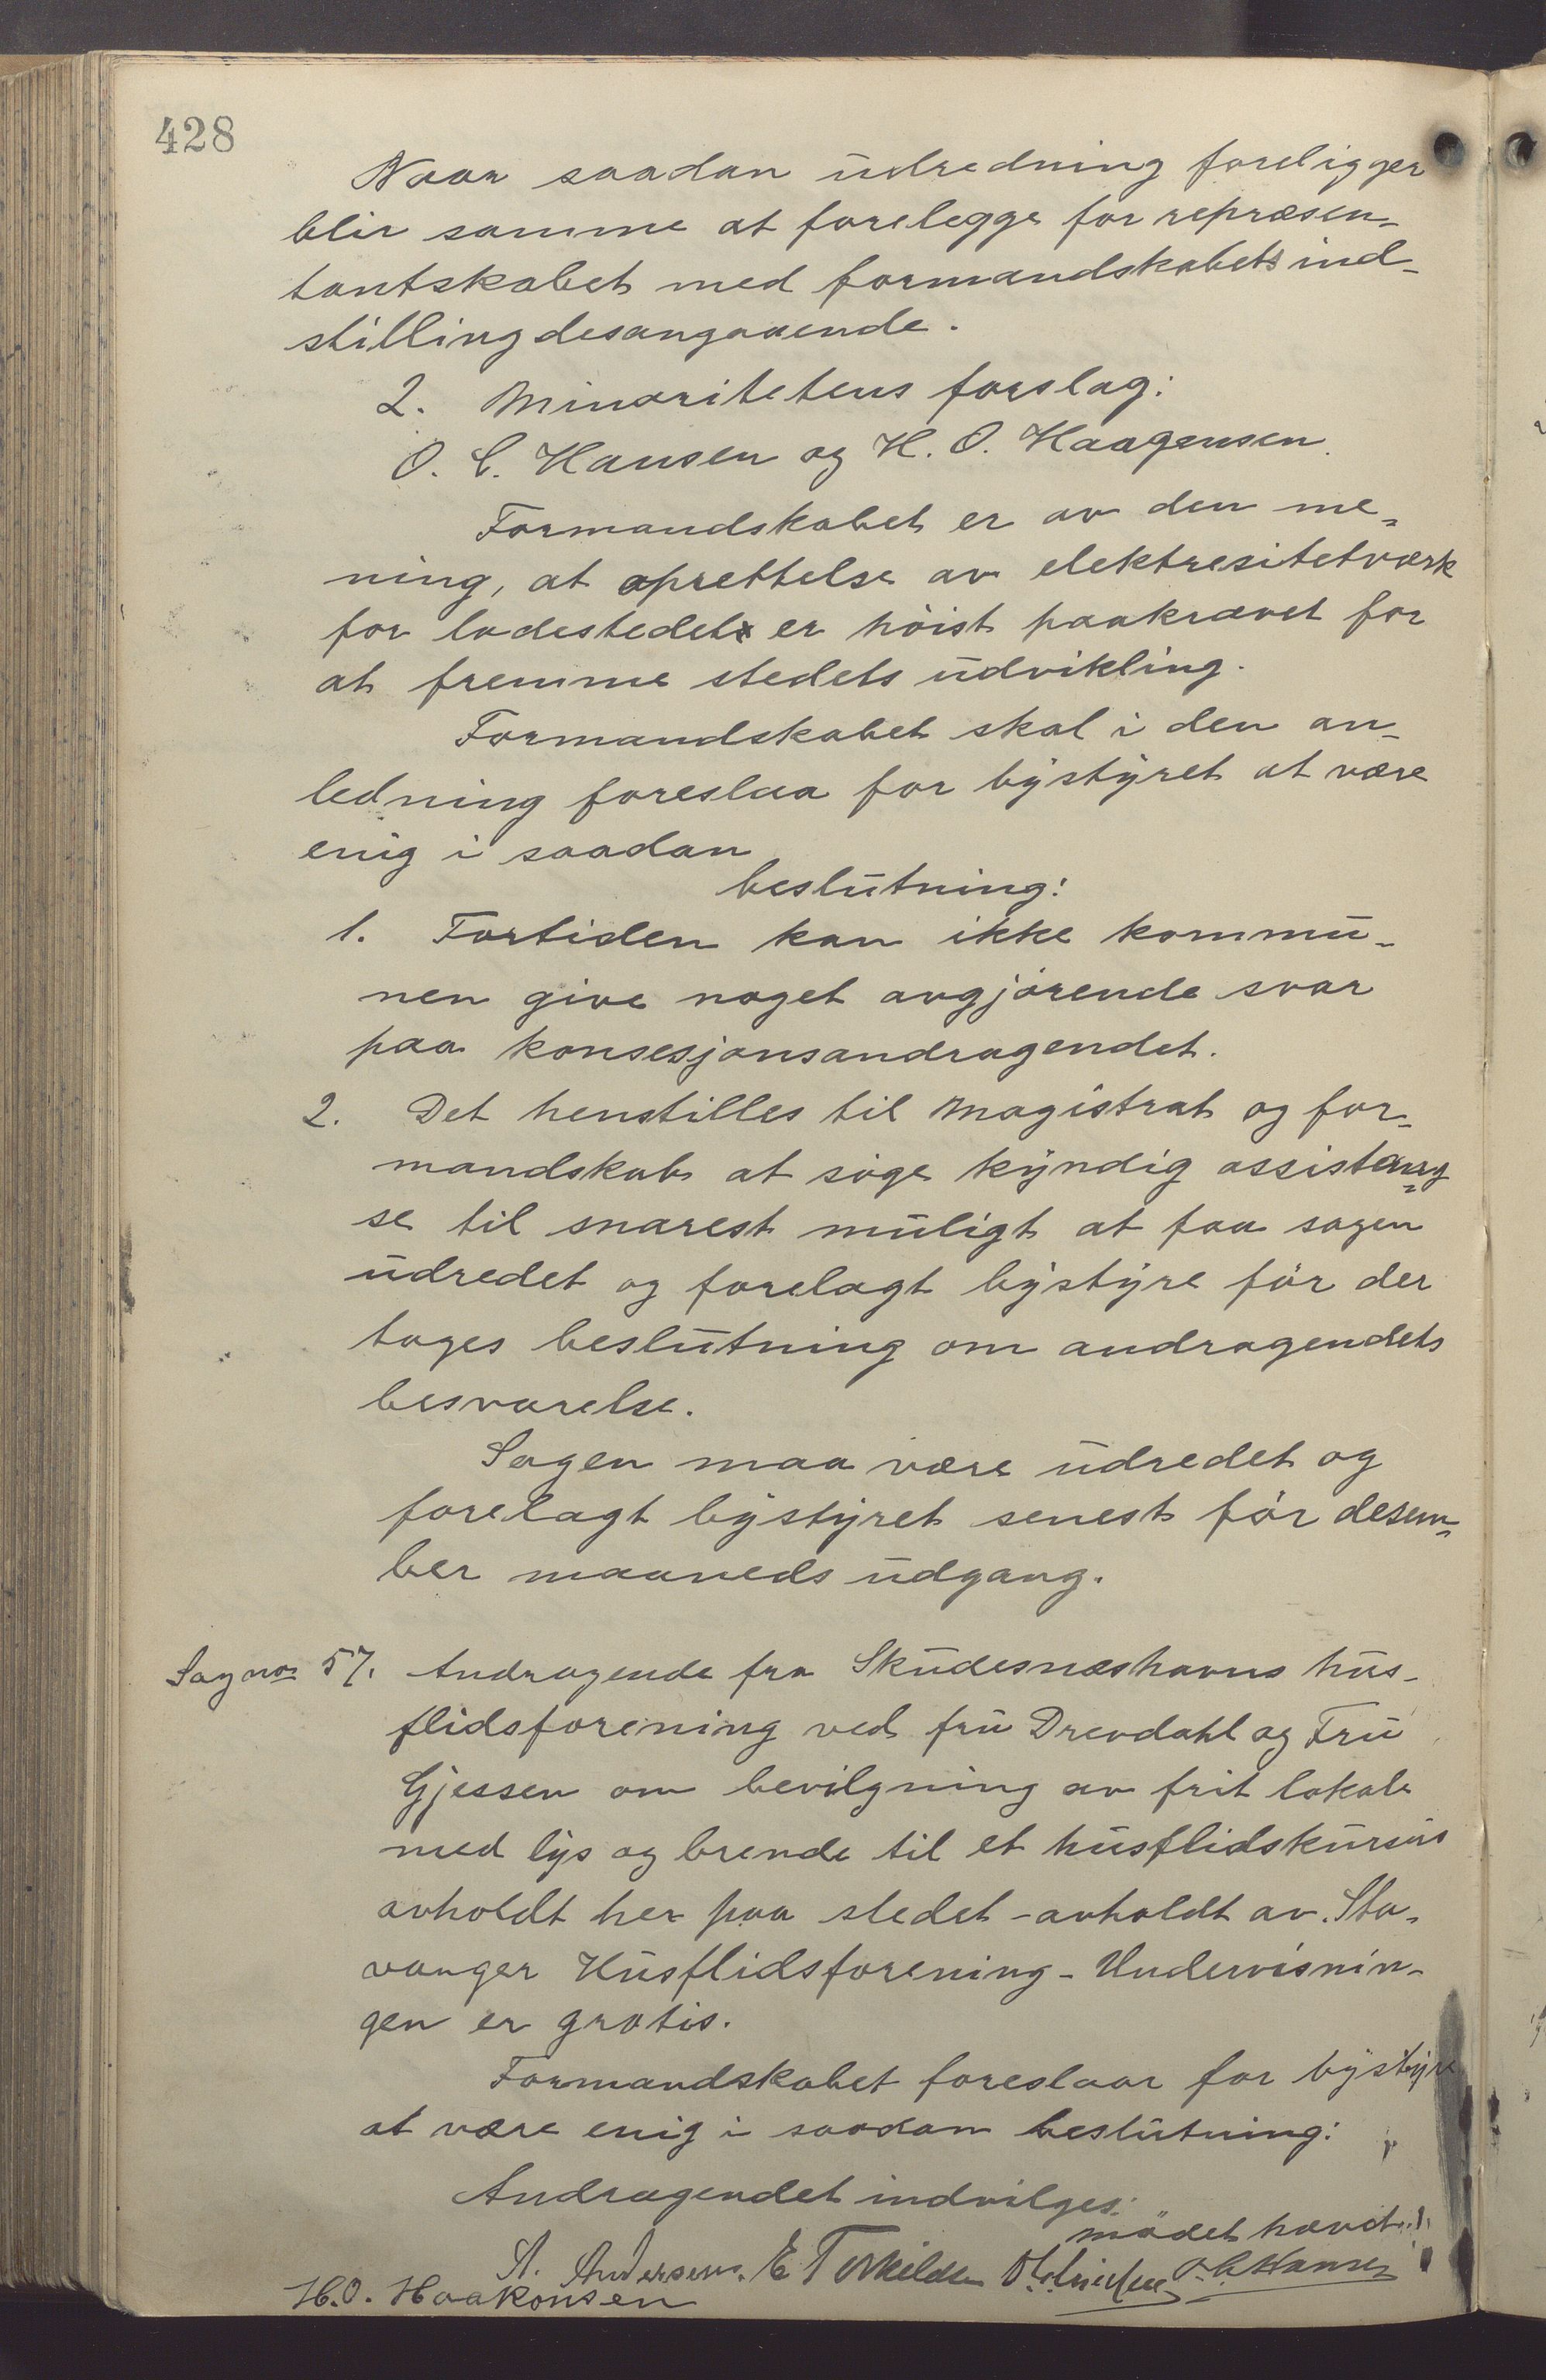 428
Naar saadan udredning foreligger
blir samme at forelegge for repræsen-
tantskabet med formandskabets ind-
stilling desangaaende.
2. Minoritetens forslag:
O. C. Hansen og H. O. Haagensen.
Formandskabet er av den me-
ning, at oprettelse av elektresitetværk
for ladestedet er höist paakrævet for
at fremme stedets udvikling.
Formandskabet skal i den an-
ledning foreslaa for bystyret at være
enig i saadan
beslutning:
1. Fortiden kan ikke kommu-
nen give noget avgjörende svar
paa konsesjonsandragendet.
2. Det henstilles til magistrat og for-
mandskab at söge kyndig assistang-
se til snarest muligt at faa sagen
udredet og forelagt bystyre för der
tages beslutning om andragendets
besvarelse.
Sagen maa være udredet og
forelagt bystyret senest för desem-
ber maaneds udgang.
Sag no 57. Andragende fra Skudesneshavns hus-
flidsforening ved fru Drevdahl og Fru
Gjessen om bevilgning av frit lokale
med lys og brende til et husflidskursus
avholdt her paa stedet - avholdt av Sta-
vanger Husflidsforening - Undervisnin-
gen er gratis.
Formandskabet foreslaar for bystyre
at være enig i saadan beslutning:
Andragendet indvilges.
mödet hævet.
A. Andersen. E Torkildsen O. C. Hansen
H.O. Haakonsen